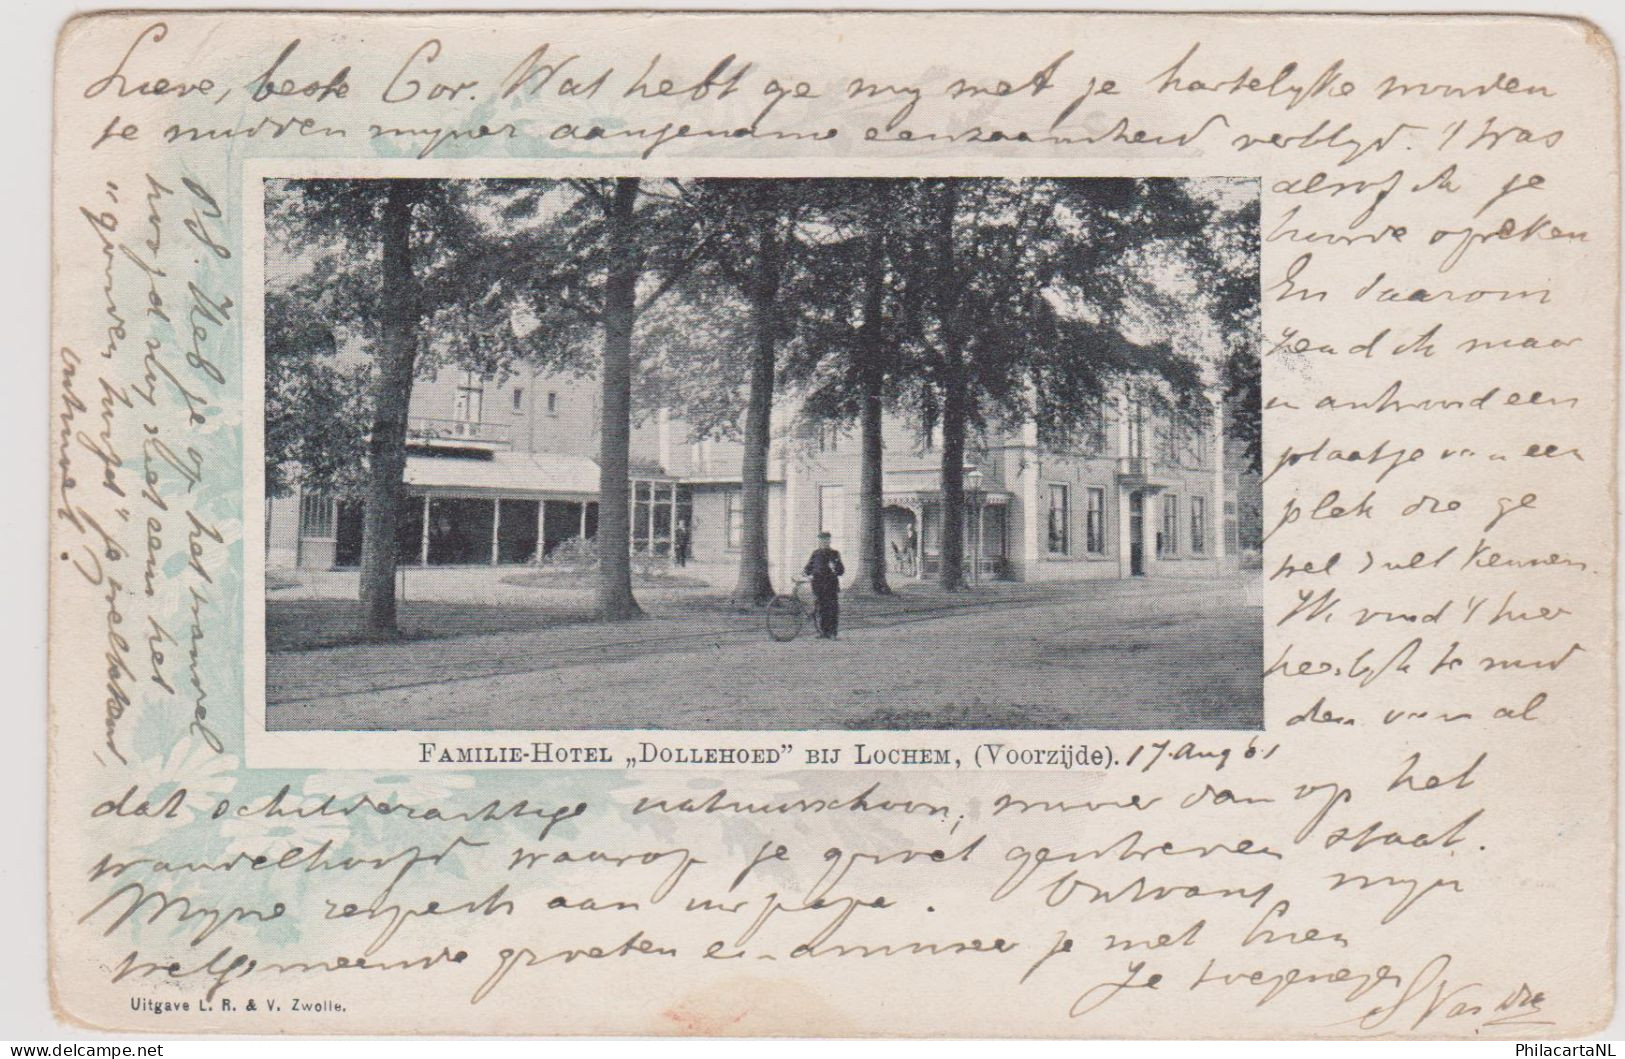 Lieve, beste Cor. Wat hebt ge my met je hartelyke woorden
te midden myner aangename eenzaamheid verblyd. 't Was
alsof ik je
hoorde spreken
En daarom
zend ik maar
in antwoord een
plaatje van een
plek die ge
wel zult kennen.
Ik vind 't hier
heerlyk te mid
den van al
dat schilderachtige natuurschoon, meer dan op het
wandelhoofd waarop je groet geschreven staat.
Myne respects aan uw papa. Ontvang myn
welgemeende groeten en amuseer je met hien
Je toegenegen
P.S. Heb je op het wandel
hoofd nog niet eens het
"gouden hoofd" je welbekend,
ontmoet?
FAMILIE-HOTEL „DOLLEHOED” BIJ LOCHEM, (Voorzijde). 17 Aug '01
Uitgave L. R. & V. Zwolle.
PhilacartaNL